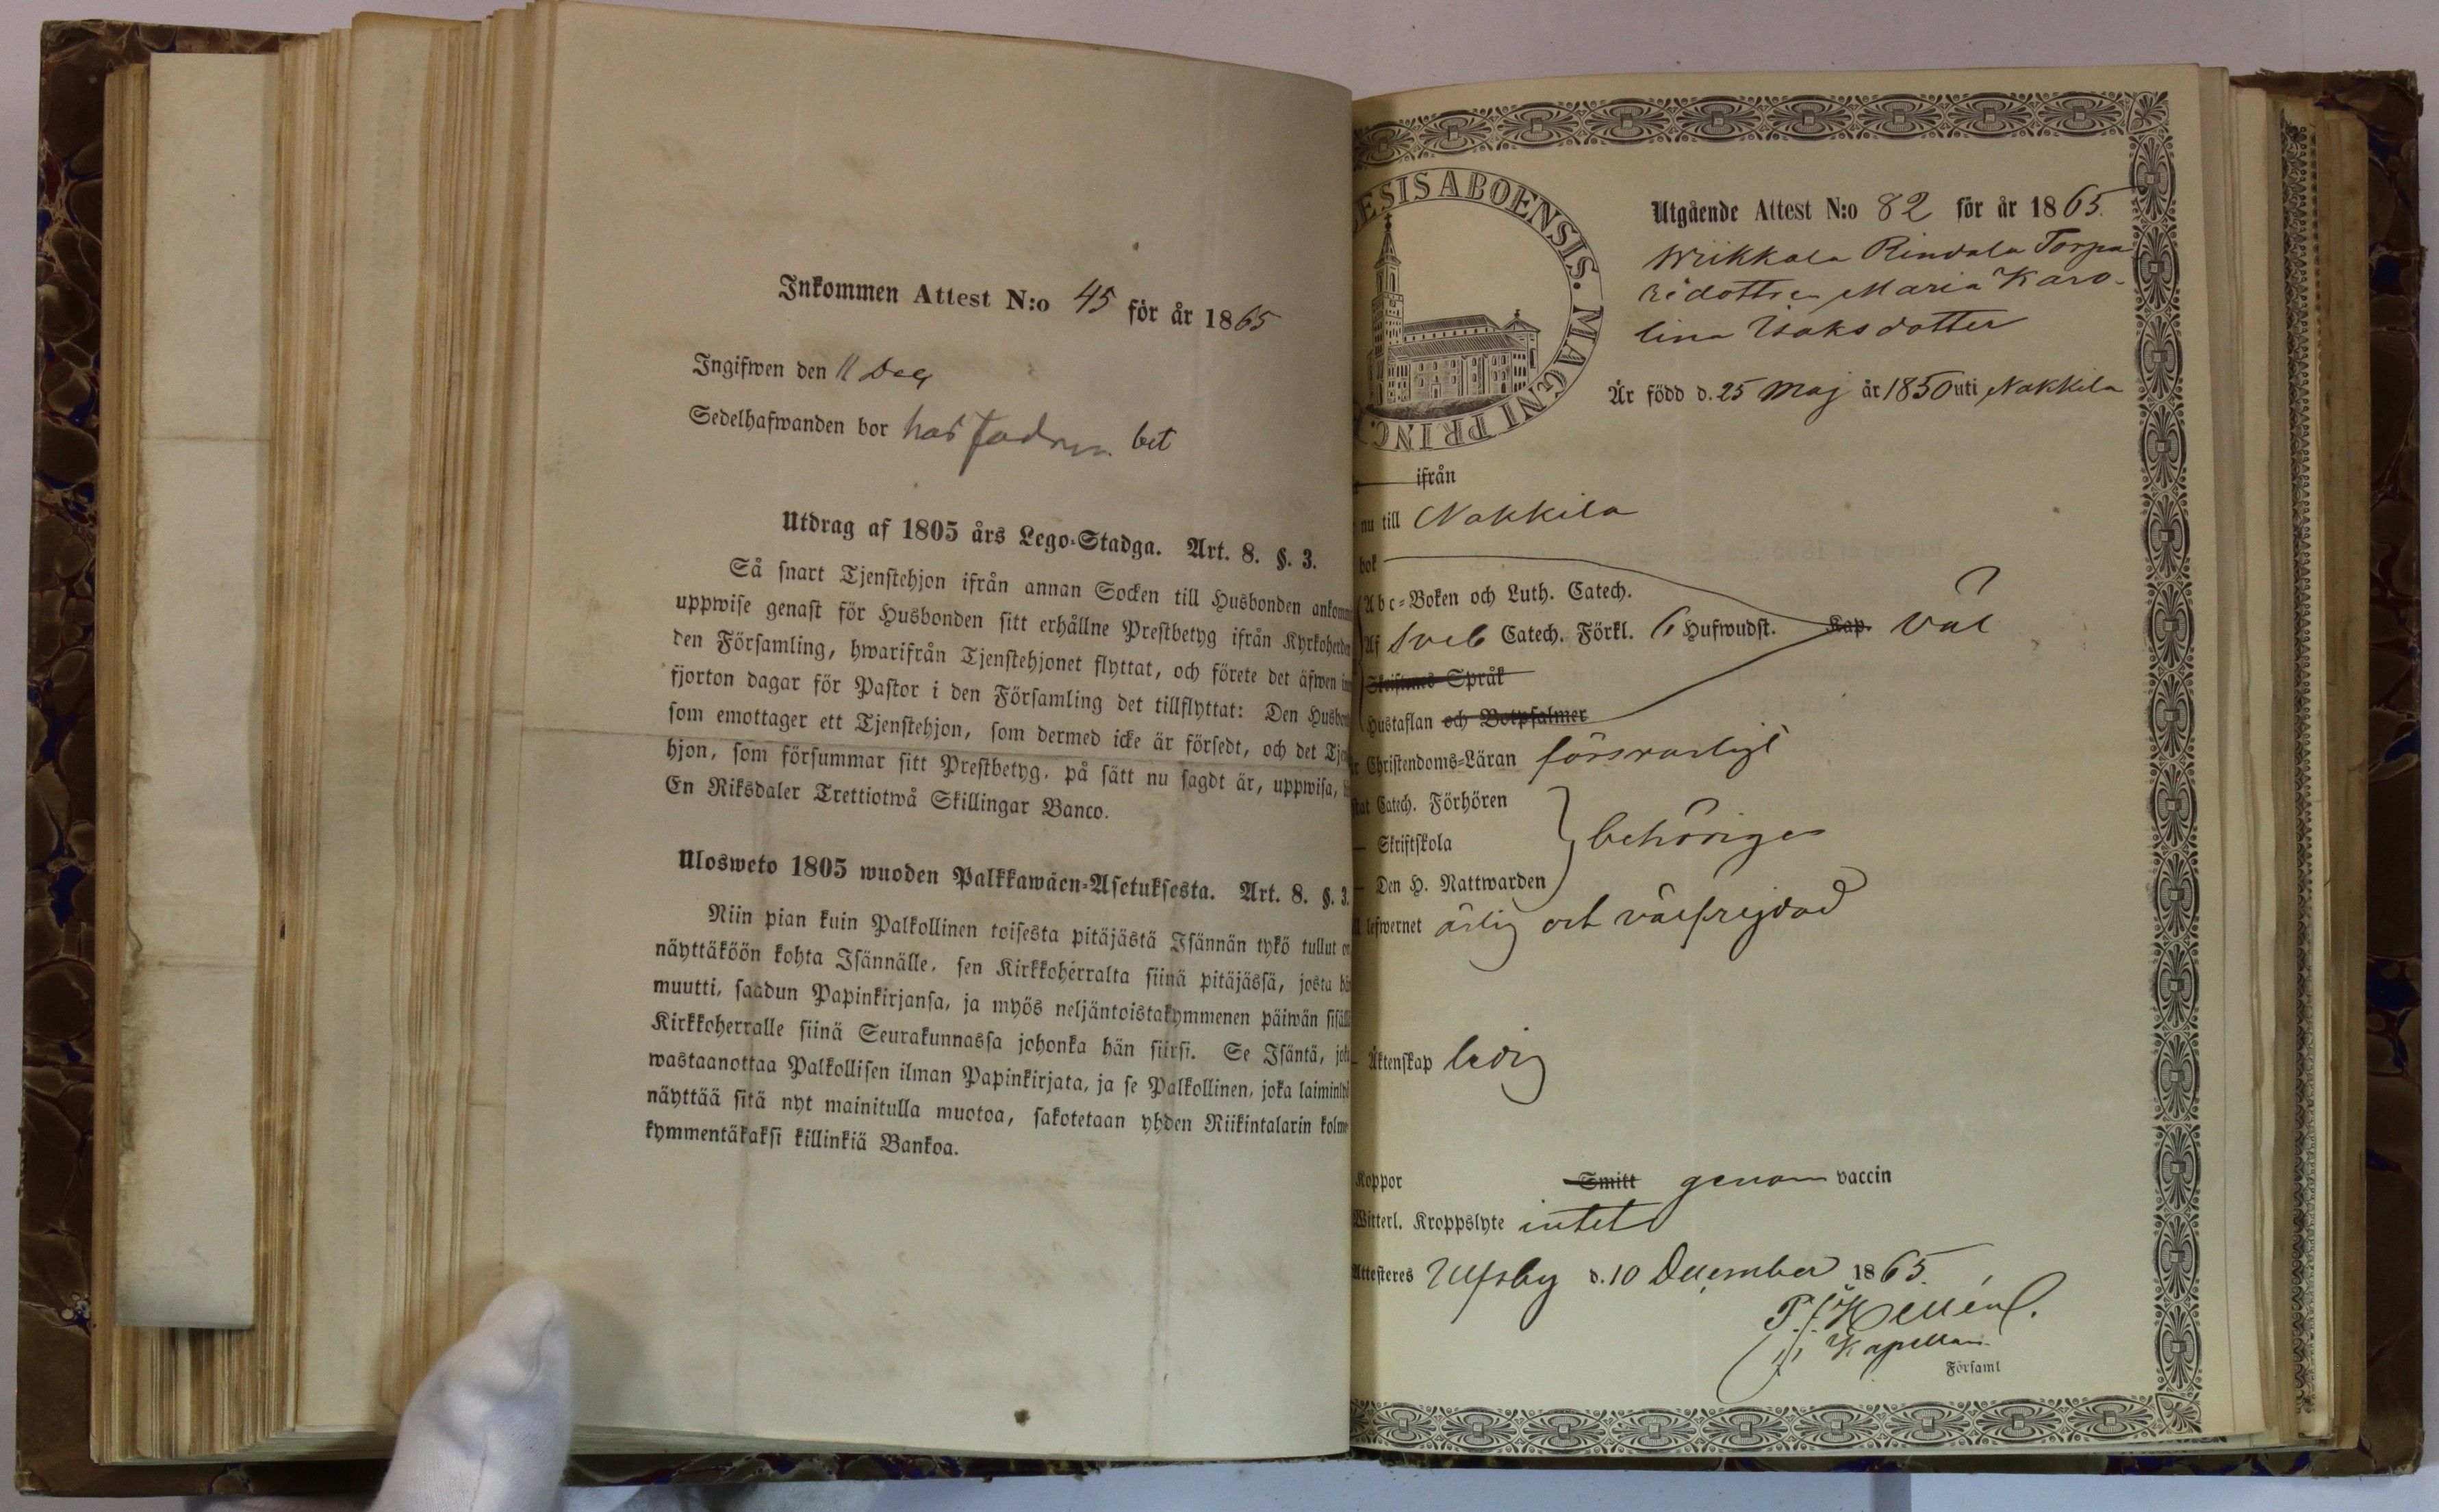 Inkommen Attest N:o 45 för år 1865
Ingifwen den 11 Dec
Sedelhafwanden bor hos fadren bet
Utdrag af 1805 års Lego-Stadga. Art. 8. §. 3.
Så snart Tjenstehjon ifrån annan Socken till Husbonden ankomm
uppwise genast för Husbonden sitt erhållne Prestbetyg ifrån Kyrkoherden
den Församling, hwarifrån Tjenstehjonet flyttat, och förete det äfwen in
fjorton dagar för Pastor i den Församling det tillflyttat: Den Husbon
som emottager ett Tjenstehjon, som dermed icke är försedt, och det Tjen
hjon, som försummar sitt Prestbetyg, på sätt nu sagdt är, uppwisa,
En Riksdaler Trettiotwå Skillingar Banco.
Ulosweto 1805 wuoden Palkkawäen-Asetuksesta. Art. 8. §. 3.
Niin pian kuin Palkollinen toisesta pitäjästä Isännän tykö tullut on
näyttäköön kohta Isännälle, sen Kirkkoherralta siinä pitäjässä, josta hän
muutti, saadun Papinkirjansa, ja myös neljäntoistakymmenen päiwän sisällä
Kirkkoherralle siinä Seurakunnassa johonka hän siirsi. Se Isäntä, joka
wastaanottaa Palkollisen ilman Papinkirjata, ja se Palkollinen, joka laiminlyö
näyttää sitä nyt mainitulla muotoa, sakotetaan yhden Riikintalarin kolme
kymmentäkaksi killinkiä Bankoa.
ESIS ABOENSIS. MAGNI PRINC.
Utgående Attest N:o 82 för år 1865.
Wiikkala Rindala Torpa
redottren Maria Karo-
lina Isaksdotter
Är född d. 25 Maj år 1850 uti Nakkila
ifrån
nu till Nakkila
bok
Abc-Boken och Luth. Catech.
Af Sveb Catech. Förkl. 6 Hufwudst. Kap. väl
Skriftenes Språk
Hustaflan och Botpsalmer
Christendoms-Läran försvarligt
Catech. Förhören
Skriftskola
behörigen
Den H. Nattwarden
lefwernet ärlig och välfrejdad
Äktenskap ledig
Koppor Smitt genom vaccin
Witterl. Kroppslyte intet
Attesteras Ulfsby d. 10 December 1865.
Hellén
Kapellan.
Församl